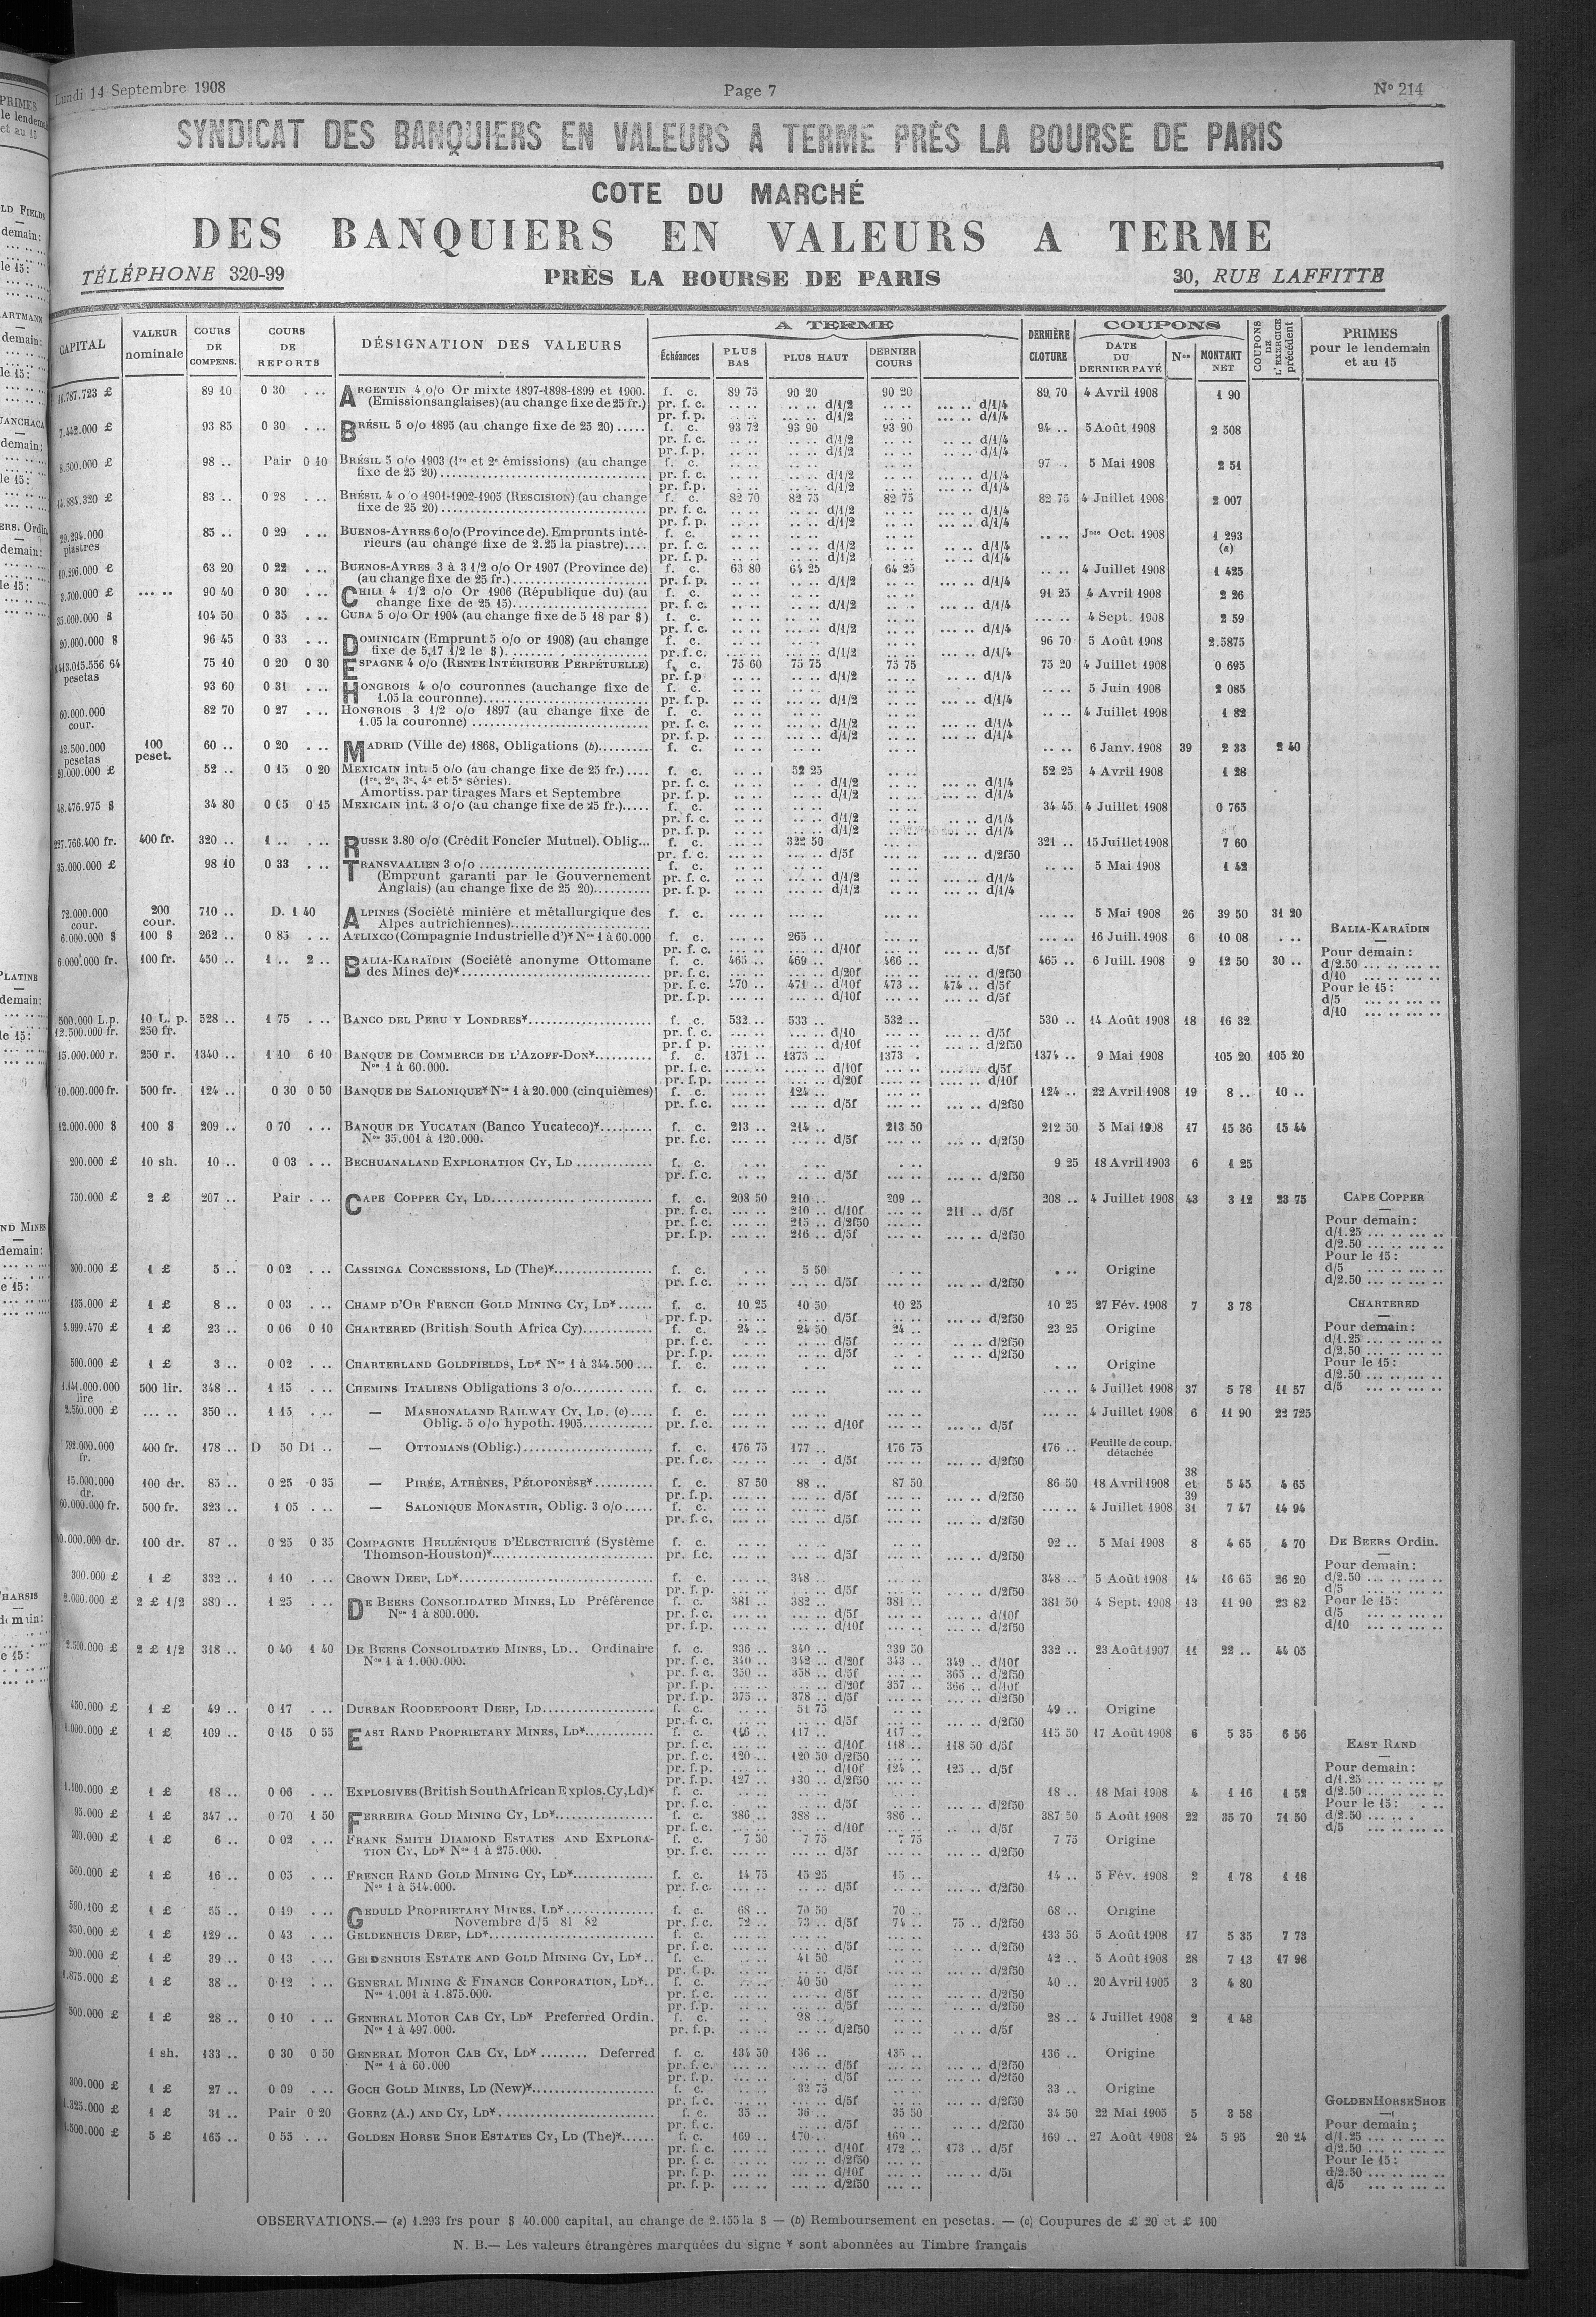 Lundi 14 Septembre 1908 Page 7 No 214
SYNDICAT DES BANQUIERS EN VALEURS A TERME PRÈS LA BOURSE DE PARIS
COTE DU MARCHÉ
DES BANQUIERS EN VALEURS A TERME
TÉLÉPHONE 320-99 PRÈS LA BOURSE DE PARIS 30, RUE LAFFITTE
CAPITAL VALEUR nominale COURS DE COMPENS. COURS DE REPORTS DÉSIGNATION DES VALEURS A TERME Échéances PLUS BAS PLUS HAUT DERNIER COURS DERNIÈRE CLOTURE COUPONS DATE DU DERNIER PAYÉ Nos MONTANT NET COUPONS DE L'EXERCICE précédent PRIMES pour le lendemain et au 15
16.787.723 £ 89 10 0 30 . .. ARGENTIN 4 o/o Or mixte 1897-1898-1899 et 1900. f. c. 89 75 90 20 90 20 89 70 4 Avril 1908 1 90
(Emissions anglaises) (au change fixe de 25 fr.) pr. f. c. d/1/2 d/1/4
pr. f. p. d/1/2 d/1/4
7.442.000 £ 93 85 0 30 . .. BRÉSIL 5 o/o 1895 (au change fixe de 25 20) ..... f. c. 93 72 93 90 93 90 94 .. 5 Août 1908 2 508
pr. f. c. d/1/2 d/1/4
pr. f. p. d/1/2 d/1/4
8.500.000 £ 98 .. Pair 0 10 BRÉSIL 5 o/o 1903 (1re et 2e émissions) (au change f. c. 97 . 5 Mai 1908 2 51
fixe de 25 20) pr. f. c. d/1/2 d/1/4
pr. f. p. d/1/2 d/1/4
14.884.320 £ 83 .. 0 28 . .. BRÉSIL 4 o/o 1901-1902-1905 (RESCISION) (au change f. c. 82 70 82 75 82 75 82 75 4 Juillet 1908 2 007
fixe de 25 20) pr. f. c. d/1/2 d/1/4
pr. f. p. d/1/2 d/1/4
29.294.000 piastres 85 .. 0 29 . .. BUENOS-AYRES 6 o/o (Province de). Emprunts inté- f. c. .. .. Jnce Oct. 1908 1 293 (a)
rieurs (au change fixe de 2.25 la piastre).... pr. f. c. d/1/2 d/1/4
pr. f. p. d/1/2 d/1/4
10.296.000 £ 63 20 0 22 . .. BUENOS-AYRES 3 à 3 1/2 o/o Or 1907 (Province de) f. c. 63 80 64 25 64 25 .. .. 4 Juillet 1908 1 425
(au change fixe de 25 fr.) pr. f. p. d/1/2 d/1/4
3.700.000 £ ... .. 90 40 0 30 . .. CHILI 4 1/2 o/o Or 1906 (République du) (au f. c. 91 25 4 Avril 1908 2 26
change fixe de 25 15) pr. f. c. d/1/2 d/1/4
35.000.000 $ 104 50 0 35 . .. CUBA 5 o/o Or 1904 (au change fixe de 5 18 par $) f. c. ... .. 4 Sept. 1908 2 59
pr. f. c. d/1/2 d/1/4
20.000.000 $ 96 45 0 33 . .. DOMINICAIN (Emprunt 5 o/o or 1908) (au change f. c. 96 70 5 Août 1908 2.5875
fixe de 5,17 1/2 le $) pr. f. c. d/1/2 d/1/4
pesetas 75 10 0 20 0 30 ESPAGNE 4 o/o (RENTE INTÉRIEURE PERPÉTUELLE) f. c. 75 60 75 75 75 75 75 20 4 Juillet 1908 0 695
pr. f. p d/1/2 d/1/4
93 60 0 31 . .. HONGROIS 4 o/o couronnes (au change fixe de f. c. .. .. 5 Juin 1908 2 085
1.05 la couronne) pr. f. p. d/1/2 d/1/4
60.000.000 cour. 82 70 0 27 . .. HONGROIS 3 1/2 o/o 1897 (au change fixe de f. c. .. .. 4 Juillet 1908 1 82
1.05 la couronne) pr. f. c. d/1/2 d/1/4
pr. f. p. d/1/2 d/1/4
42.500.000 pesetas 100 peset. 60 .. 0 20 . .. MADRID (Ville de) 1868, Obligations (b) f. c. .. .. 6 Janv. 1908 39 2 33 2 40
20.000.000 £ 52 .. 0 15 0 20 MEXICAIN int. 5 o/o (au change fixe de 25 fr.).... f. c. 52 25 52 25 4 Avril 1908 1 28
(1re, 2e, 3e, 4e et 5e séries) pr. f. c. d/1/2 d/1/4
Amortiss. par tirages Mars et Septembre pr. f. p. d/1/2 d/1/4
48.476.975 $ 34 80 0 05 0 15 MEXICAIN int. 3 o/o (au change fixe de 25 fr.)..... f. c. 34 45 4 Juillet 1908 0 765
pr. f. c. d/1/2 d/1/4
pr. f. p. d/1/2 d/1/4
227.766.400 fr. 400 fr. 320 .. 1 .. . .. RUSSE 3.80 o/o (Crédit Foncier Mutuel). Oblig... f. c. 322 50 321 .. 15 Juillet 1908 7 60
pr. f. c. d/5f d/2f50
35.000.000 £ 98 10 0 33 . .. TRANSVAALIEN 3 o/o f. c. .. .. 5 Mai 1908 1 42
(Emprunt garanti par le Gouvernement pr. f. c. d/1/2 d/1/4
Anglais) (au change fixe de 25 20) pr. f. p. d/1/2 d/1/4
72.000.000 cour. 200 cour. 710 .. D. 1 40 ALPINES (Société minière et métallurgique des f. c. ... .. 5 Mai 1908 26 39 50 31 20
Alpes autrichiennes)
6.000.000 $ 100 $ 262 .. 0 85 . .. ATLIXCO (Compagnie Industrielle d')* Nos 1 à 60.000 f. c. 265 .. ... .. 16 Juill. 1908 6 10 08 . ..
pr. f. c. d/10f d/5f
6.000.000 fr. 100 fr. 450 .. 1 .. 2 .. BALIA-KARAÏDIN (Société anonyme Ottomane f. c. 465 .. 469 .. 466 .. 465 .. 6 Juill. 1908 9 12 50 30 ..
des Mines de)* pr. f. c. d/20f d/2f50
pr. f. c. 470 .. 471 .. d/10f 473 .. 474 .. d/5f
pr. f. p. d/10f d/5f
BALIA-KARAÏDIN
Pour demain :
d/2.50 ... .. ... ..
d/10 ... .. ... ..
Pour le 15 :
d/5 ... .. ... ..
d/10 ... .. ... ..
500.000 L.p. 10 L. p. 528 .. 1 75 . .. BANCO DEL PERU Y LONDRES* f. c. 532 .. 533 .. 532 .. 530 .. 14 Août 1908 18 16 32
12.500.000 fr. 250 fr. pr. f. c. d/10 d/5f
pr. f. p. d/10f d/2f50
15.000.000 r. 250 r. 1340 .. 1 10 6 10 BANQUE DE COMMERCE DE L'AZOFF-DON* f. c. 1371 .. 1375 .. 1373 . 1374 .. 9 Mai 1908 105 20 105 20
Nos 1 à 60.000. pr. f. c. d/10f d/5f
pr. f. p. d/20f d/10f
10.000.000 fr. 500 fr. 124 .. 0 30 0 50 BANQUE DE SALONIQUE* Nos 1 à 20.000 (cinquièmes) f. c. 124 .. 124 .. 22 Avril 1908 19 8 .. 10 ..
pr. f. c. d/5f d/2f50
12.000.000 $ 100 $ 209 .. 0 70 . .. BANQUE DE YUCATAN (Banco Yucateco)* f. c. 213 .. 214 .. 213 50 212 50 5 Mai 1908 17 15 36 15 44
Nos 35.001 à 120.000. pr. f.c. d/5f d/2f50
200.000 £ 10 sh. 10 .. 0 03 . .. BECHUANALAND EXPLORATION CY, LD f. c. 9 25 18 Avril 1903 6 1 25
pr. f. c. d/5f d/2f50
750.000 £ 2 £ 207 .. Pair . .. CAPE COPPER CY, LD f. c. 208 50 210 .. 209 .. 208 .. 4 Juillet 1908 43 3 12 23 75
pr. f. c. 210 .. d/10f 211 .. d/5f
pr. f. c. 215 .. d/2f50
pr. f. p. 216 .. d/5f d/2f50
CAPE COPPER
Pour demain :
d/1.25 ... .. ... ..
d/2.50 ... .. ... ..
Pour le 15 :
d/5 ... .. ... ..
d/2.50 ... .. ... ..
300.000 £ 1 £ 5 .. 0 02 . .. CASSINGA CONCESSIONS, LD (The)* f. c. 5 50 . .. Origine
pr. f. c. d/5f d/2f50
135.000 £ 1 £ 8 .. 0 03 . .. CHAMP D'OR FRENCH GOLD MINING CY, LD* f. c. 10 25 10 50 10 25 10 25 27 Fév. 1908 7 3 78
pr. f. p. d/5f d/2f50
1 £ 23 .. 0 06 0 10 CHARTERED (British South Africa Cy) f. c. 24 .. 24 50 24 .. 23 25 Origine
pr. f. c. d/5f d/2f50
pr. f. p. d/5f d/2f50
CHARTERED
Pour demain :
d/1.25 ... .. ... ..
d/2.50 ... .. ... ..
Pour le 15 :
d/2.50 ... .. ... ..
d/5 ... .. ... ..
500.000 £ 1 £ 3 .. 0 02 . .. CHARTERLAND GOLDFIELDS, LD* Nos 1 à 344.500 ... f. c. . .. Origine
1.141.000.000 lire 500 lir. 348 .. 1 15 . .. CHEMINS ITALIENS Obligations 3 o/o f. c. ... .. 4 Juillet 1908 37 5 78 11 57
2.560.000 £ ... .. 350 .. 1 15 . .. — MASHONALAND RAILWAY CY, LD. (c) f. c. ... .. 4 Juillet 1908 6 11 90 22 725
Oblig. 5 o/o hypoth. 1905 pr. f. c. d/10f d/5f
792.000.000 fr. 400 fr. 178 .. D 50 D1 .. — OTTOMANS (Oblig.) f. c. 176 75 177 .. 176 75 176 .. Feuille de coup. détachée
pr. f. c. d/5f d/2f50
15.000.000 dr. 100 dr. 85 .. 0 25 0 35 — PIRÉE, ATHÈNES, PÉLOPONÈSE* f. c. 87 50 88 .. 87 50 86 50 18 Avril 1908 38 et 39 5 45 4 65
pr. f. p. d/5f d/2f50
500 fr. 323 .. 1 05 . .. — SALONIQUE MONASTIR, Oblig. 3 o/o f. c. ... .. 4 Juillet 1908 31 7 47 14 94
pr. f. c. d/5f d/2f50
100 dr. 87 .. 0 25 0 35 COMPAGNIE HELLÉNIQUE D'ELECTRICITÉ (Système f. c. 92 .. 5 Mai 1908 8 4 65 4 70
Thomson-Houston)* pr. f.c. d/5f d/2f50
300.000 £ 1 £ 332 .. 1 10 . .. CROWN DEEP, LD* f. c. 348 348 .. 5 Août 1908 14 16 65 26 20
pr. f. p. d/5f d/2f50
2.000.000 £ 2 £ 1/2 380 .. 1 25 . .. DE BEERS CONSOLIDATED MINES, LD Préférence f. c. 381 .. 382 .. 381 .. 381 50 4 Sept. 1908 13 11 90 23 82
Nos 1 à 800.000. pr. f. c. d/5f d/10f
pr. f. p. d/10f d/2f50
DE BEERS Ordin.
Pour demain :
d/2.50 ... .. ... ..
d/5 ... .. ... ..
Pour le 15 :
d/5 ... .. ... ..
d/10 ... .. ... ..
2.500.000 £ 2 £ 1/2 318 .. 0 40 1 40 DE BEERS CONSOLIDATED MINES, LD.. Ordinaire f. c. 336 .. 340 .. 339 50 332 .. 23 Août 1907 11 22 .. 44 05
Nos 1 à 1.000.000. pr. f. c. 340 .. 342 .. d/20f 343 .. 349 .. d/10f
pr. f. c. 350 .. 358 .. d/5f 365 .. d/2f50
pr. f. p. d/20f 357 .. 366 .. d/10f
pr. f. p. 375 .. 378 .. d/5f d/2f50
450.000 £ 1 £ 49 .. 0 17 . .. DURBAN ROODEPOORT DEEP, LD f. c. 51 75 49 .. Origine
pr. f. c. d/5f d/2f50
1.000.000 £ 1 £ 109 .. 0 15 0 55 EAST RAND PROPRIETARY MINES, LD* f. c. 116 .. 117 .. 117 .. 115 50 17 Août 1908 6 5 35 6 56
pr. f. c. d/10f 118 .. 118 50 d/5f
pr. f. c. 120 .. 120 50 d/2f50
pr. f. p. d/10f 124 .. 125 .. d/5f
pr. f. p. 127 .. 130 .. d/2f50
EAST RAND
Pour demain :
d/1.25 ... .. ... ..
d/2.50 ... .. ... ..
Pour le 15 :
d/2.50 ... .. ... .
d/5 ... .. ... ..
1.100.000 £ 1 £ 18 .. 0 06 . .. EXPLOSIVES (British South African Explos. Cy, Ld)* f. c. 18 .. 18 Mai 1908 4 1 16 1 52
pr. f. c. d/5f d/2f50
95.000 £ 1 £ 347 .. 0 70 1 50 FERREIRA GOLD MINING CY, LD* f. c. 386 .. 388 .. 386 .. 387 50 5 Août 1908 22 35 70 71 50
pr. f. c. d/10f d/5f
300.000 £ 1 £ 6 .. 0 02 . .. FRANK SMITH DIAMOND ESTATES AND EXPLORA- f. c. 7 50 7 75 7 75 7 75 Origine
TION CY, LD* Nos 1 à 275.000. pr. f. c. d/5f d/2f50
560.000 £ 1 £ 16 .. 0 05 . .. FRENCH RAND GOLD MINING CY, LD* f. c. 14 75 15 25 15 .. 14 .. 5 Fév. 1908 2 1 78 1 18
Nos 1 à 514.000. pr. f. c. d/5f d/2f50
590.400 £ 1 £ 55 .. 0 19 . .. GEDULD PROPRIETARY MINES, LD* f. c. 68 .. 70 50 70 .. 68 .. Origine
Novembre d/5 81 82 pr. f. c. 72 .. 73 .. d/5f 74 .. 75 .. d/2f50
350.000 £ 1 £ 129 .. 0 43 . .. GELDENHUIS DEEP, LD* f. c. 133 50 5 Août 1908 17 5 35 7 73
pr. f. c. d/5f d/2f50
200.000 £ 1 £ 39 .. 0 13 . .. GELDENHUIS ESTATE AND GOLD MINING CY, LD* f. c. 41 50 42 .. 5 Août 1908 28 7 13 17 96
pr. f. p. d/5f d/2f50
1.875.000 £ 1 £ 38 .. 0 12 . .. GENERAL MINING & FINANCE CORPORATION, LD* f. c. 40 50 40 .. 20 Avril 1905 3 4 80
Nos 1.001 à 1.875.000. pr. f. c. d/5f d/2f50
pr. f. p. d/5f d/2f50
500.000 £ 1 £ 28 .. 0 10 . .. GENERAL MOTOR CAB CY, LD* Preferred Ordin. f. c. 28 .. 28 .. 4 Juillet 1908 2 1 48
Nos 1 à 497.000. pr. f. p. d/2f50 d/5f
1 sh. 133 .. 0 30 0 50 GENERAL MOTOR CAB CY, LD* ........ Deferred f. c. 134 50 136 .. 135 .. 136 .. Origine
Nos 1 à 60.000 pr. f. c. d/5f d/2f50
pr. f. p. d/5f d/2f50
300.000 £ 1 £ 27 .. 0 09 . .. GOCH GOLD MINES, LD (New)* f. c. 33 75 33 .. Origine
pr. f. c. d/5f d/2f50
1.325.000 £ 1 £ 31 .. Pair 0 20 GOERZ (A.) AND CY, LD* f. c. 35 .. 36 .. 35 50 34 50 22 Mai 1905 5 3 58
pr. f. c. d/5f d/2f50
1.500.000 £ 5 £ 165 .. 0 55 . .. GOLDEN HORSE SHOE ESTATES CY, LD (The)* f. c. 169 .. 170 .. 169 .. 169 .. 27 Août 1908 24 5 95 20 24
pr. f. c. d/10f 172 .. 173 .. d/5f
pr. f. c. d/2f50
pr. f. p. d/10f
pr. f. p. d/2f50
GOLDEN HORSE SHOE
Pour demain ;
d/1.25 ... .. ... ..
d/2.50 ... .. ... ..
Pour le 15 :
d/2.50 ... .. ... ..
d/5 ... .. ... ..
OBSERVATIONS.— (a) 1.293 frs pour $ 40.000 capital, au change de 2.155 la $ — (b) Remboursement en pesetas. — (c) Coupures de £ 20 et £ 100
N. B.— Les valeurs étrangères marquées du signe * sont abonnées au Timbre français